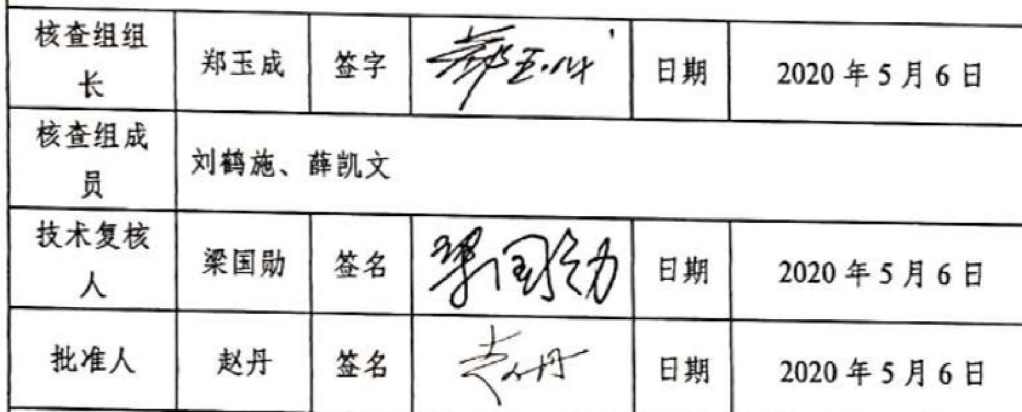 核查组组长 郑玉成 签字 郑玉成 日期 2020 年 5 月 6 日
核查组成员 刘鹤施、薛凯文
技术复核人 梁国勋 签名 梁国勋 日期 2020 年 5 月 6 日
批准人 赵丹 签名 赵丹 日期 2020 年 5 月 6 日